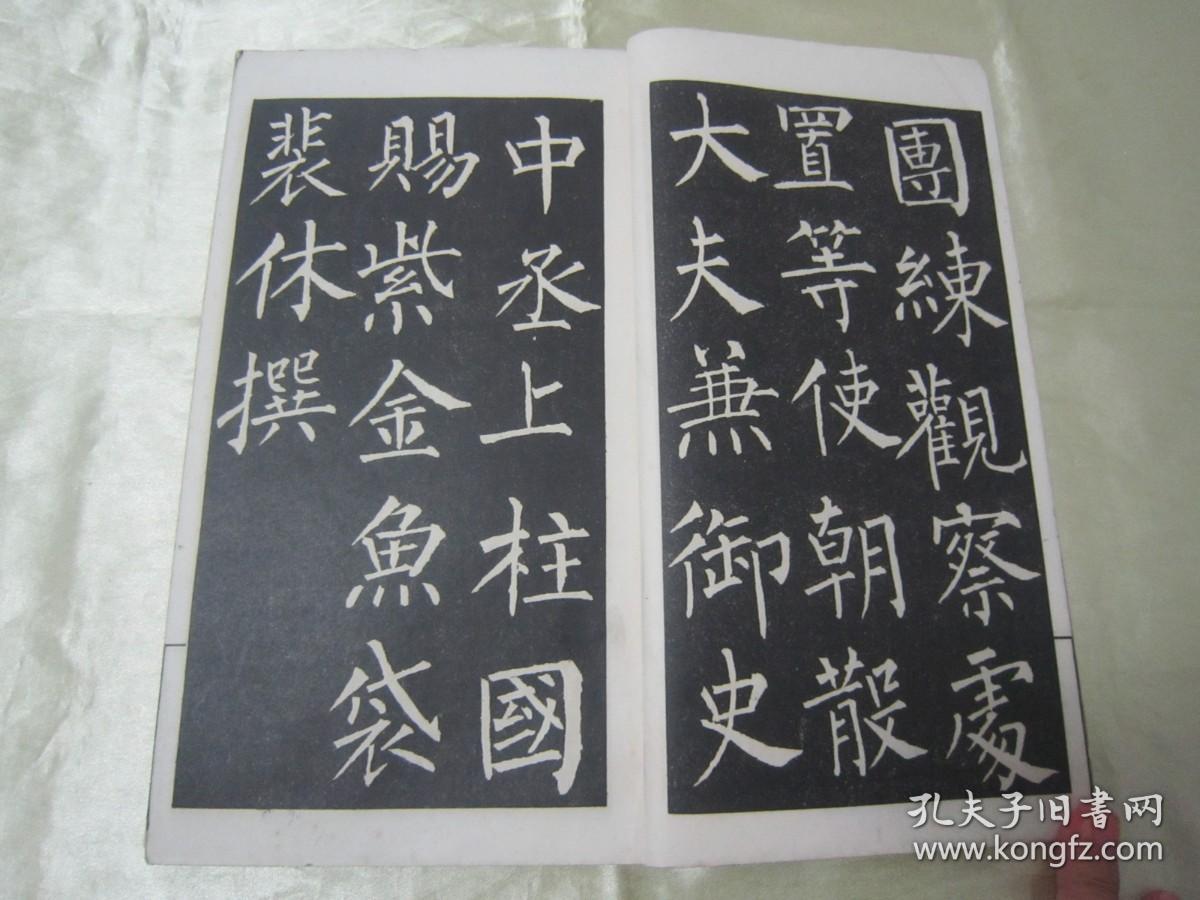 團練觀察處
置等使朝散
大夫兼御史
中丞上柱國
賜紫金魚袋
裴休撰
孔夫子旧书网
www.kongfz.com